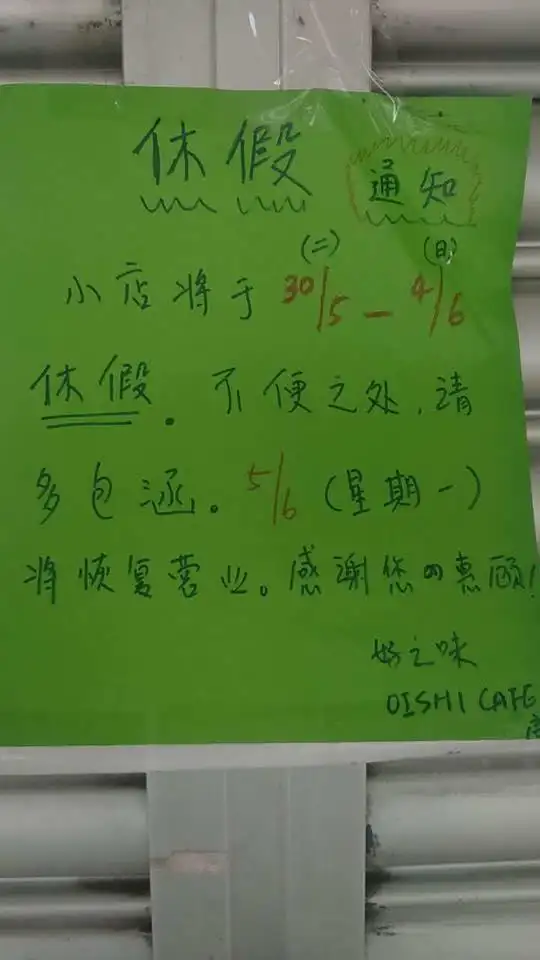 休假 通知
(二) (日)
小店将于 30/5 — 4/6
休假. 不便之处,请
多包涵。5/6 (星期一)
将恢复营业。感谢您的惠顾!
好之味
OISHI CAFE